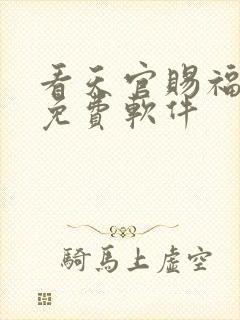 看天官賜福
免費軟件
騎馬上虛空